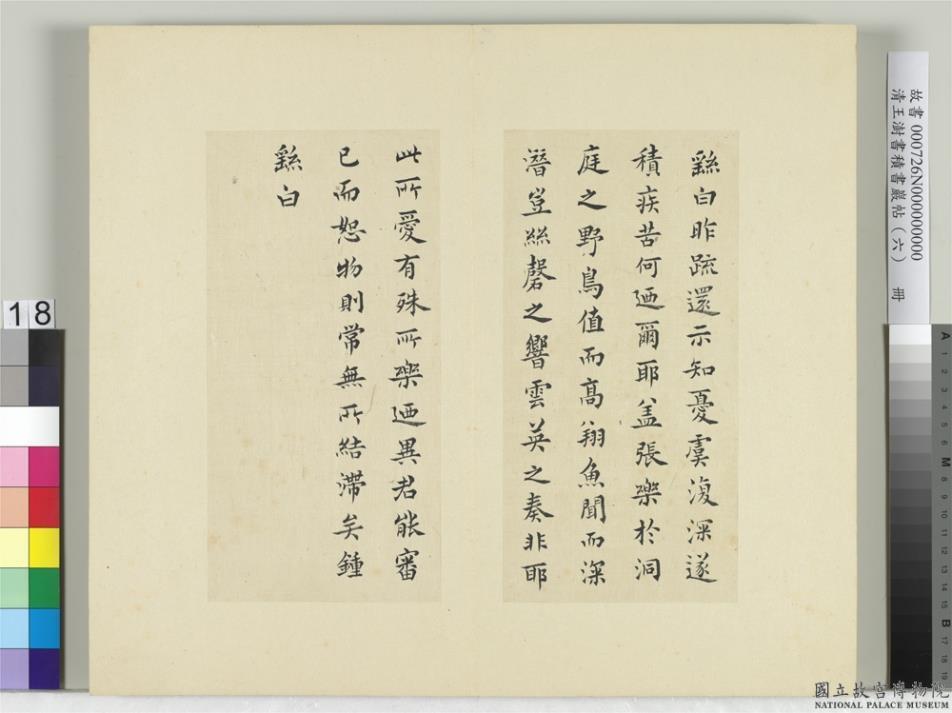 繇白昨疏還示知憂虞復深遂
積疾苦何迺爾耶盖張樂於洞
庭之野鳥值而高翔魚聞而深
潛豈絲磬之響雲英之奏非耶
此所愛有殊所樂迺異君能審
已而恕物則常無所結滯矣鍾
繇白
故書 000726N000000000
清王澍書積書巖帖(六) 冊
18
A 1 2 3 4 5 6 M 8 9 10 11 12 13 14 15 B 17 18 19
國立故宮博物院
NATIONAL PALACE MUSEUM